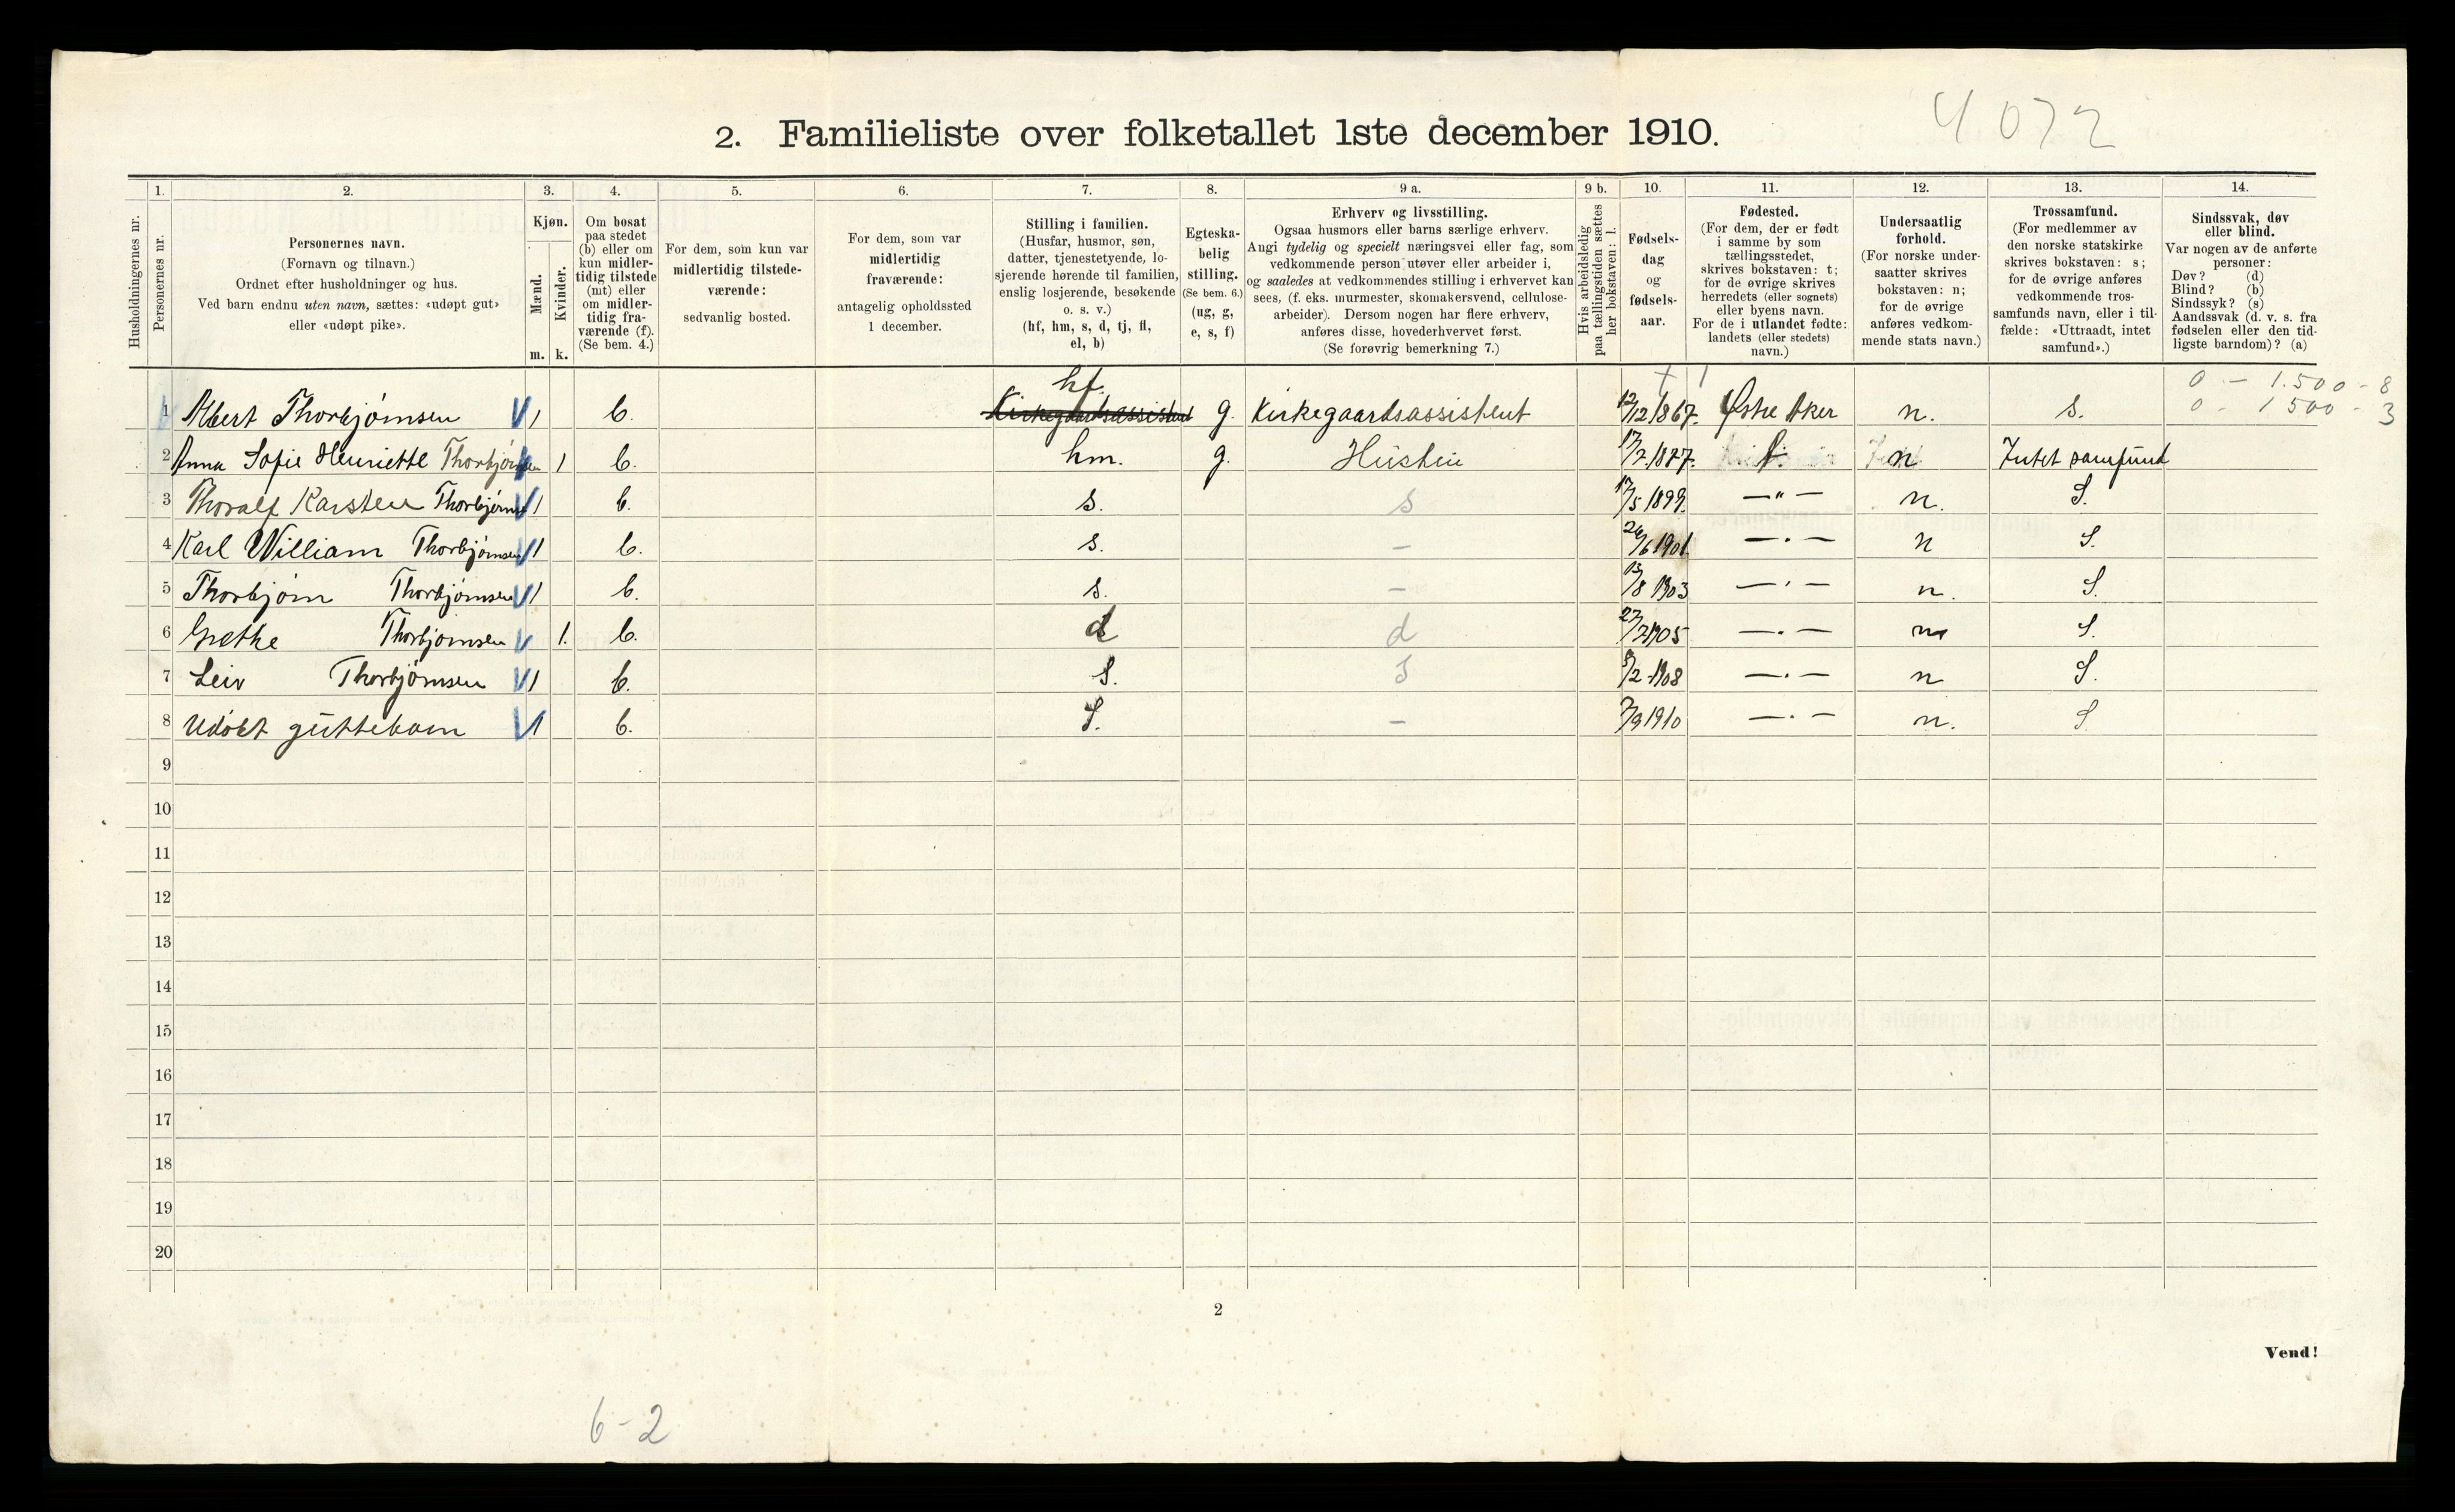 4072
2. Familieliste over folketallet 1ste december 1910.
1. 2. 3. 4. 5. 6. 7. 8. 9 a. 9 b. 10. 11. 12. 13. 14.
Husholdningernes nr.
Personernes nr.
Personernes navn.
(Fornavn og tilnavn.)
Ordnet efter husholdninger og hus.
Ved barn endnu uten navn, sættes: «udøpt gut»
eller «udøpt pike».
Kjøn.
Mænd.
Kvinder.
m. k.
Om bosat
paa stedet
(b) eller om
kun midler-
tidig tilstede
(mt) eller
om midler-
tidig fra-
værende (f).
(Se bem. 4.)
For dem, som kun var
midlertidig tilstede-
værende:
sedvanlig bosted.
For dem, som var
midlertidig
fraværende:
antagelig opholdssted
1 december.
Stilling i familien.
(Husfar, husmor, søn,
datter, tjenestetyende, lo-
sjerende hørende til familien,
enslig losjerende, besøkende
o. s. v.)
(hf, hm, s, d, tj, fl,
el, b)
Egteska-
belig
stilling.
(Se bem. 6.)
(ug, g,
e, s, f)
Erhverv og livsstilling.
Ogsaa husmors eller barns særlige erhverv.
Angi tydelig og specielt næringsvei eller fag, som
vedkommende person utøver eller arbeider i,
og saaledes at vedkommendes stilling i erhvervet kan
sees, (f. eks. murmester, skomakersvend, cellulose-
arbeider). Dersom nogen har flere erhverv,
anføres disse, hovederhvervet først.
(Se forøvrig bemerkning 7.)
Hvis arbeidsledig
paa tællingstiden sættes
her bokstaven: l.
Fødsels-
dag
og
fødsels-
aar.
Fødested.
(For dem, der er født
i samme by som
tællingsstedet,
skrives bokstaven: t;
for de øvrige skrives
herredets (eller sognets)
eller byens navn.
For de i utlandet fødte:
landets (eller stedets)
navn.)
Undersaatlig
forhold.
(For norske under-
saatter skrives
bokstaven: n;
for de øvrige
anføres vedkom-
mende stats navn.)
Trossamfund.
(For medlemmer av
den norske statskirke
skrives bokstaven: s;
for de øvrige anføres
vedkommende tros-
samfunds navn, eller i til-
fælde: «Uttraadt, intet
samfund».)
Sindssvak, døv
eller blind.
Var nogen av de anførte
personer:
Døv? (d)
Blind? (b)
Sindssyk? (s)
Aandssvak (d. v. s. fra
fødselen eller den tid-
ligste barndom)? (a)
0 - 1.500 - 8
0 - 1500 - 3
hf.
1 Albert Thorbjørnsen 1 b. Kirkegaardsassistent g. Kirkegaardsassistent 12/12 1867. Østre Aker n. s.
2 Anna Sofie Henriette Thorbjørnsen 1 b. hm. g. Hustru 17/7 1877. t. n Intet samfund
3 Thoralf Karsten Thorbjørnsen 1 b. s. s 17/5 1899. —"— n. S.
4 Karl William Thorbjørnsen 1 b. s. — 26/6 1901. —·— n S.
5 Thorbjørn Thorbjørnsen 1 b. s. — 13/8 1903 —·— n. S.
6 Grethe Thorbjørnsen 1. b. d d 27/7 1905 —·— n S.
7 Leiv Thorbjørnsen 1 b. S. S 8/2 1908 —·— n S.
8 Udøbt guttebarn 1 b. S. — 7/9 1910 —·— n. S
9
10
11
12
13
14
15
16
17
18
19
20
2
Vend!
6-2